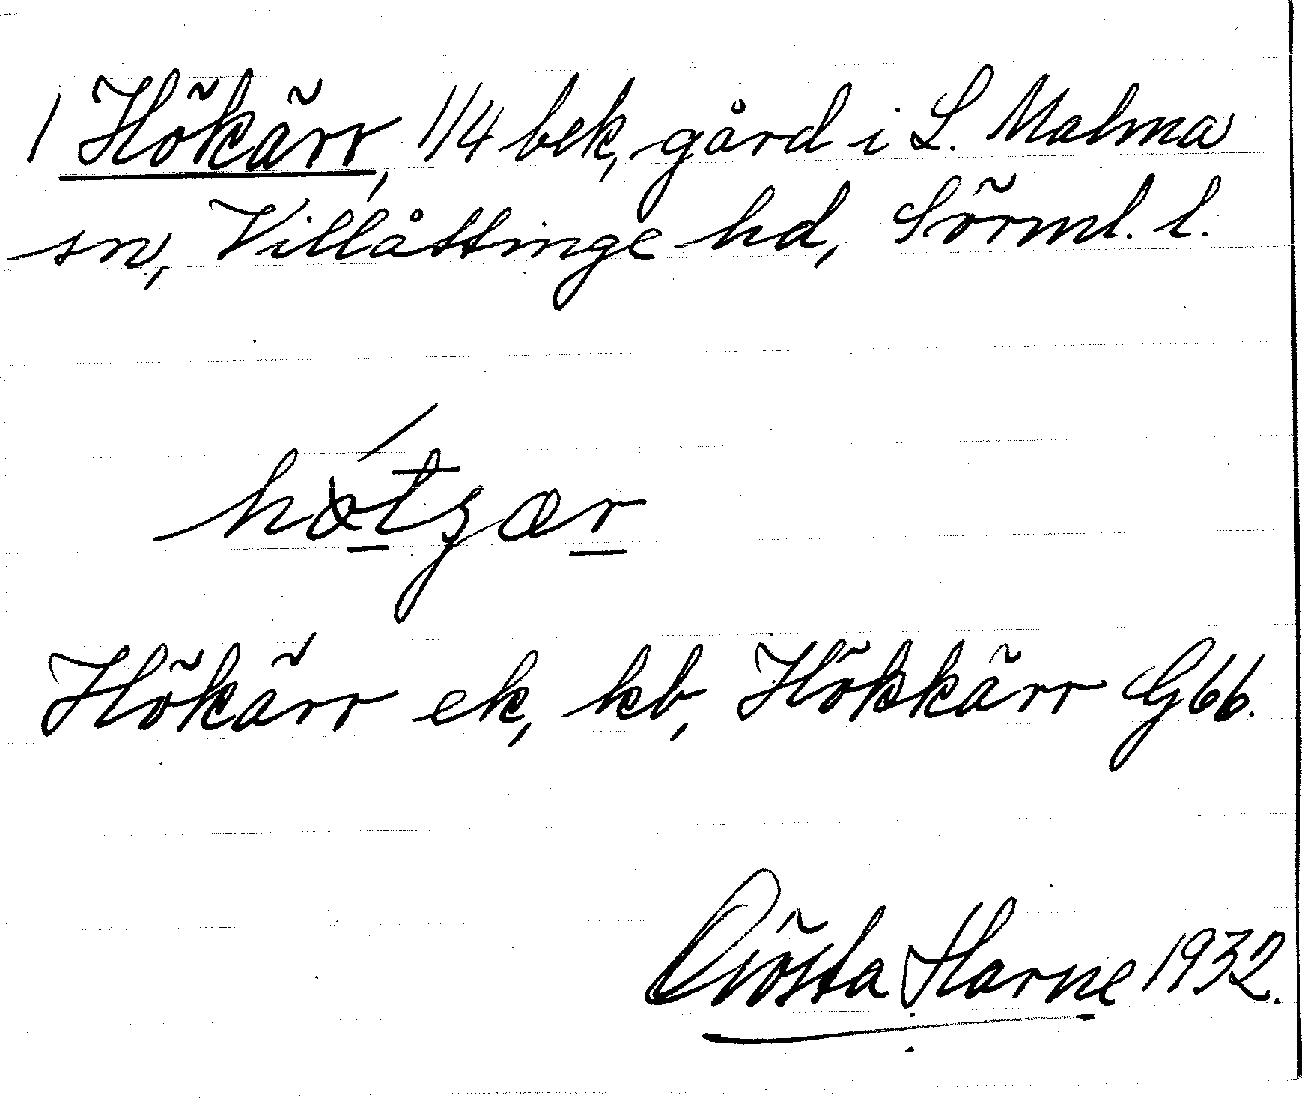 1 Hökärr, 1/4 bek, gård i L. Malma
sn, Villåttinge hd, Sörml. l.
Hökärr ek, kb, Hökkärr G66.
Gösta Harne 1932.